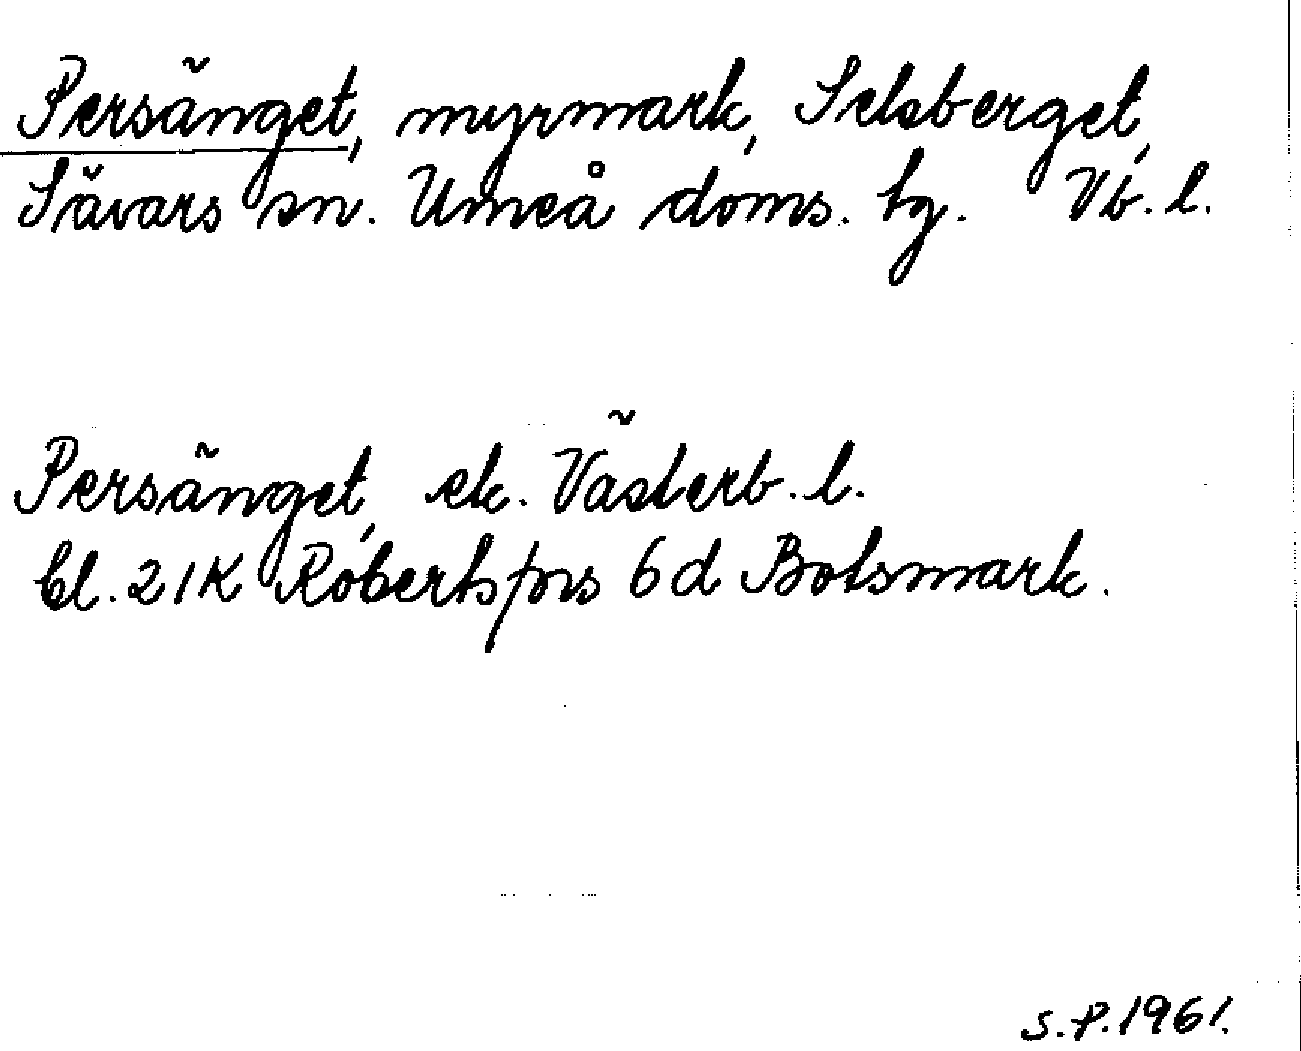 Persänget, myrmark, Selsberget,
Sävars sn. Umeå doms. tg. Vb. l.
Persänget, ek. Västerb. l.
bl. 21K Robertsfors 6d Botsmark.
S.P. 1961.